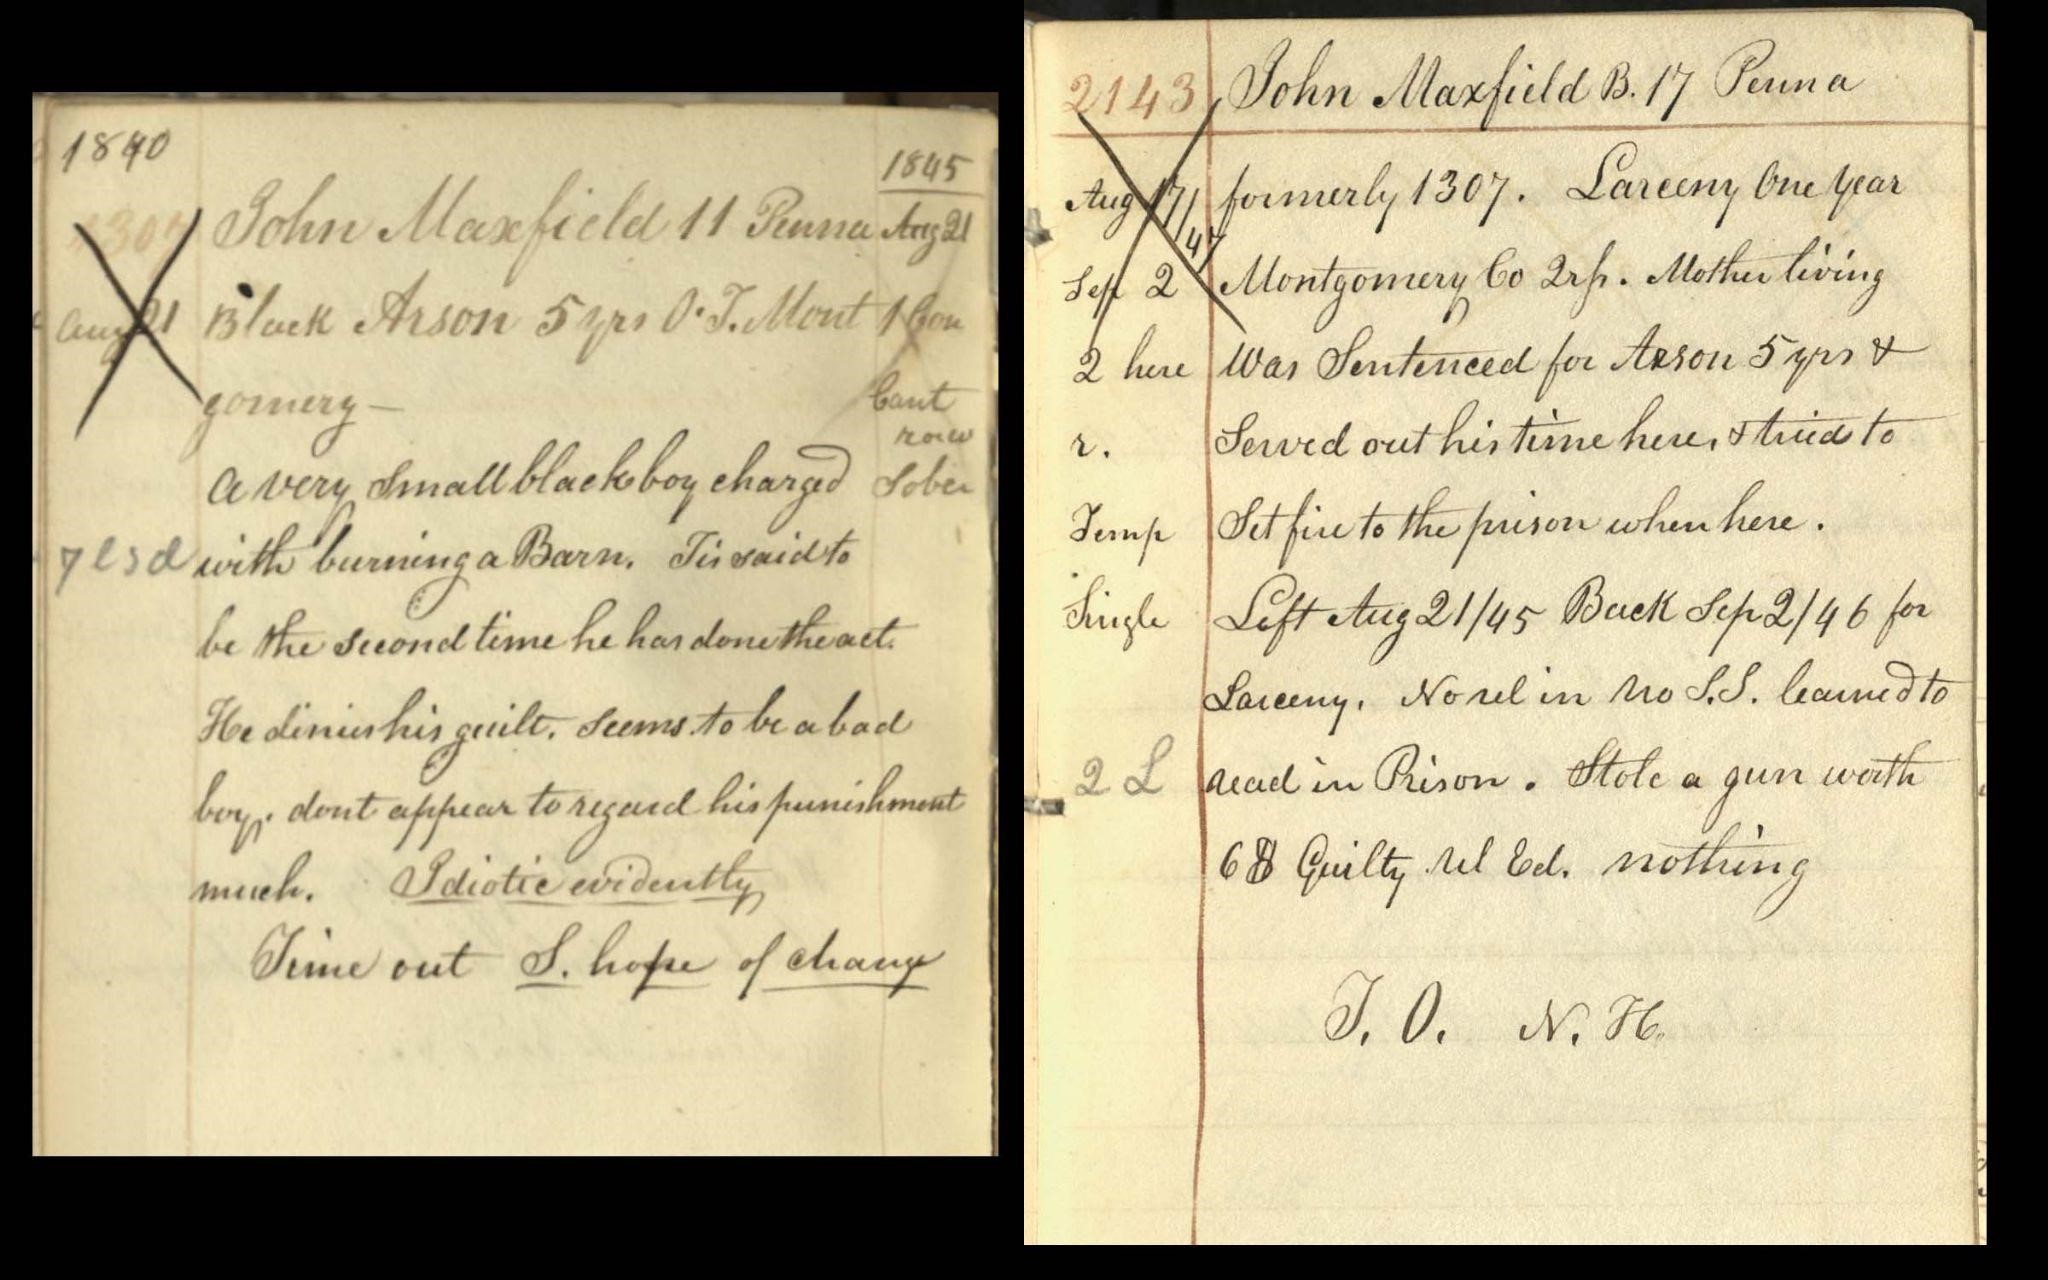 1840
1845
1307 John Maxfield 11 Penna Aug 21
Aug 21 Black Arson 5 yrs O.T. Mont 1 Con
gomery — Cant
raw
A very small black boy charged Sober
7 l s d with burning a Barn. Tis said to
be the second time he has done the act.
He dinies his guilt. Seems to be a bad
boy. dont appear to regard his punishment
much. Idiotic evidently
Time out S. hope of change
2143 John Maxfield B. 17 Penna
Aug 17/47 formerly 1307. Larceny One year
Sep 2 Montgomery Co 2rp. Mother living
2 here Was Sentenced for Arson 5 yrs &
r. Served out his time here, & tried to
Temp Set fire to the prison when here.
Single Left Aug 21/45 Back Sep 2/46 for
Larceny. No rel in no S.S. learned to
2 L read in Prison. Stole a gun worth
6 $ Guilty rel Ed. nothing
T. O. N. H.